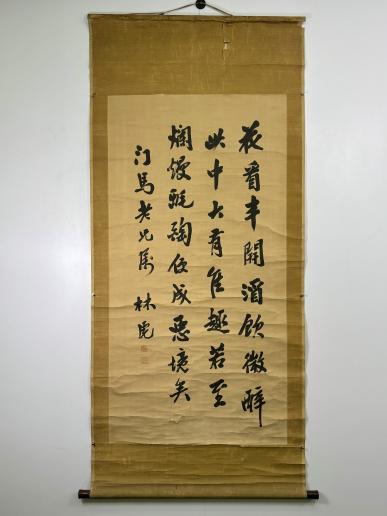 花看半開酒飲微醉
此中大有佳趣若至
爛熳酕醄便成惡境矣
门馬老兄属 林虎